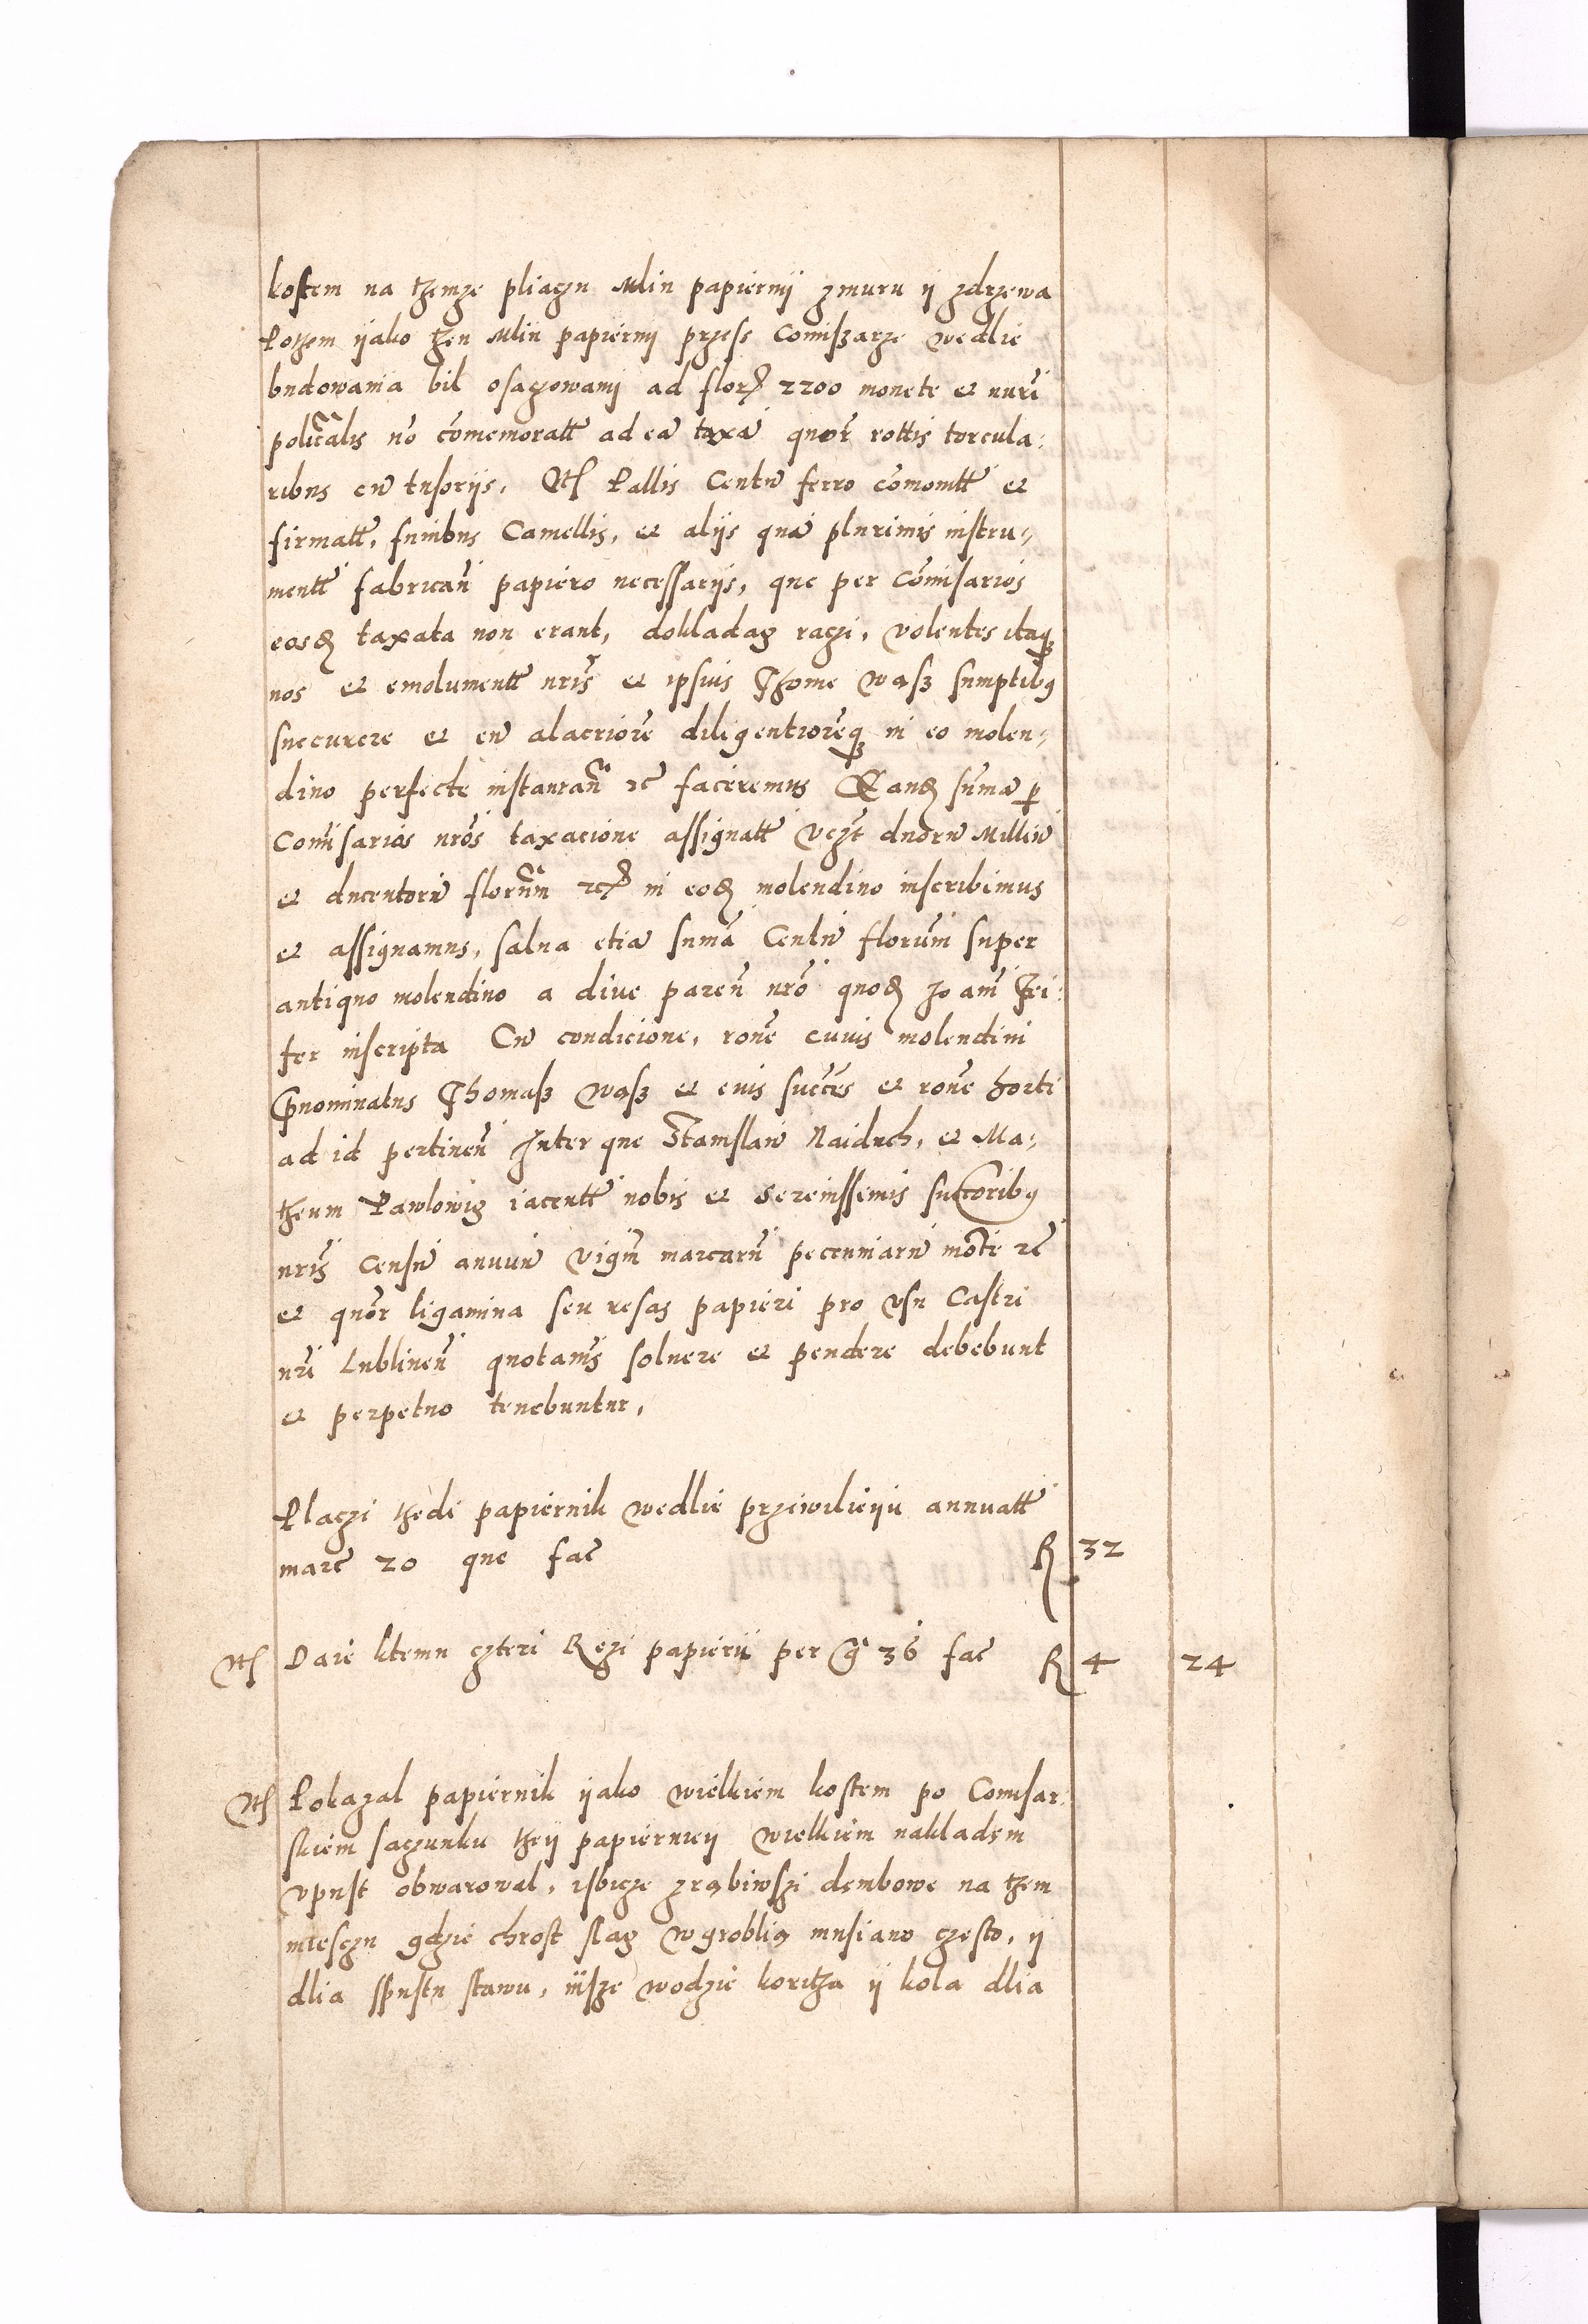 kostem na tzemze pliaczu Mlin papiernij zmuru ij zdrzewa
Potzem ijako tzen Mlin papiernij przese Comisżarze wedlie
budowania bil osaczowanij ad flor 2200 monete et nuri
polıcalis nō cōmemoratt ad eā taxā quor rottis torcula:
ribus cū tusoriis, Itē Pallis Centū ferro cōmonitt et
firmatt, funibus Camellis, et aliis quā plurimis instru-
mentt fabricań papiero necessariis, que per Cōmisarios
eosd taxata non erant, dokladaz raczi, volentes itaq
nos et emolumentt nrīs et ipsius Thome wąsz sumptibus
succurere et eū alacriorē diligentiorēq in eo molen-
dino perfecte instaurań etc faceremus eand sumā p
Comisarios nros taxacione assignatt vczt duorū Milliū
et ducentorū florum etc in eod molendino inscribimus
et assignamus, salua etiā sumā Centū florum super
antiquo molendino a dive pareń nro quod Joanī Fei:
fer inscripta Cū condicione, ronē cuius molendini
prenominatus Thomasz wąsz et eius succes et ronē horti
ad id pertineń Inter que Stanislaū Naiduch, et Ma-
theum Pawlowiz iacentt nobis et serenissimis succoribus
nris Censū anuū vigin marcarū pecuniariū moti etc
et quor ligamina seu resas papieri pro usu Castri
nri Lublineń quotanis soluere et pendere debebunt
et perpetuo tenebuntur,
Placzi thedi papiernik wedlie przeiwilieiju annuatt
marc 20 que fac R 32
Itē Daie ktemu czteri Rezi papieru per g 36 fac R 4 24
Itē Pokazal papiernik ijako wielkiem kostem po Comisar:
skiem saczunku tzeij papierniej wielkiem nakladem
vpust obwarowal, isbicze zrąbiwszi dembowe na tzem
miesczu gdzie chrost slaz w groblią musiano czesto, ij
dlia spustu stawu, iisze wodzie koritza ij kola dlia